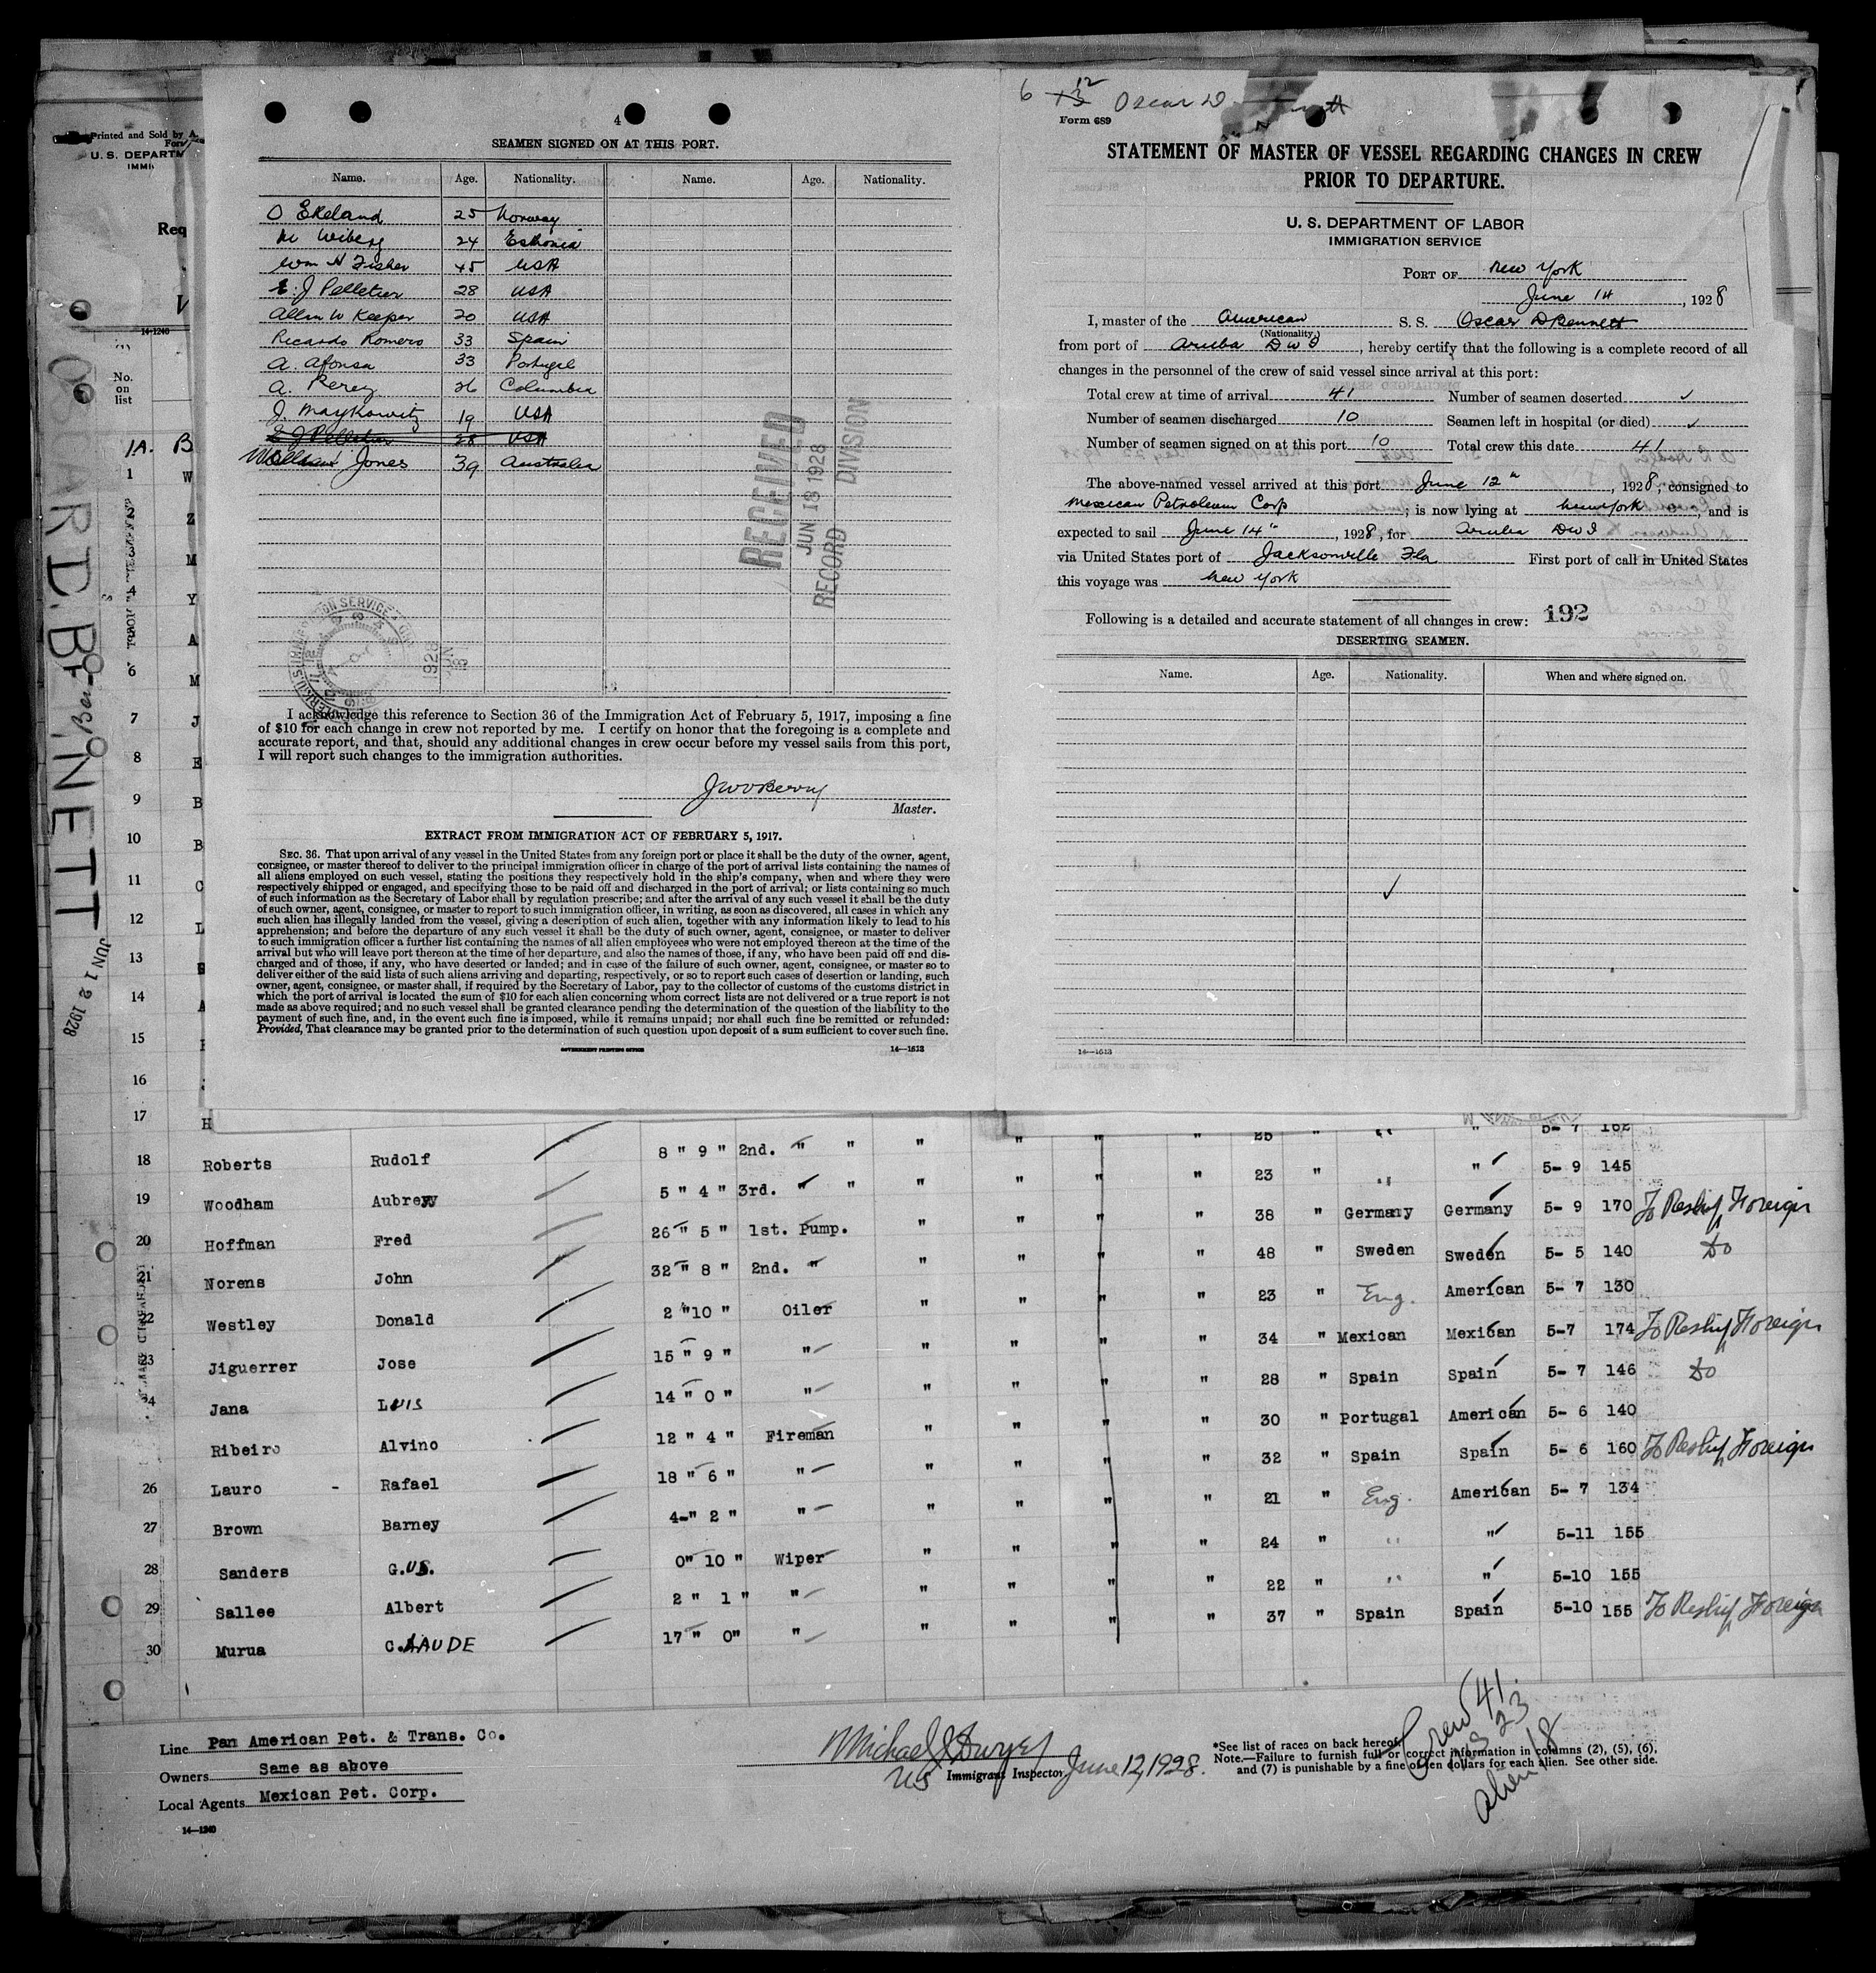 4
SEAMEN SIGNED ON AT THIS PORT.
Name. Age. Nationality. Name. Age. Nationality.
O Ekeland 25 Norway
M Wiberg 24 Esthonia
Wm H Fisher 45 USA
E. J Pelletier 28 USA
Allen W Keeper 20 USA
Ricardo Romero 33 Spain
A. Afonsa 33 Portugal
A. Perez 26 Columbia
J. Maykowitz 19 USA
E J Pelletier 28 USA
William Jones 39 Australia
RECEIVED
JUN 18 1928
RECORD DIVISION
I acknowledge this reference to Section 36 of the Immigration Act of February 5, 1917, imposing a fine
of $10 for each change in crew not reported by me. I certify on honor that the foregoing is a complete and
accurate report, and that, should any additional changes in crew occur before my vessel sails from this port,
I will report such changes to the immigration authorities.
Master.
EXTRACT FROM IMMIGRATION ACT OF FEBRUARY 5, 1917.
SEC. 36. That upon arrival of any vessel in the United States from any foreign port or place it shall be the duty of the owner, agent,
consignee, or master thereof to deliver to the principal immigration officer in charge of the port of arrival lists containing the names of
all aliens employed on such vessel, stating the positions they respectively hold in the ship's company, when and where they were
respectively shipped or engaged, and specifying those to be paid off and discharged in the port of arrival; or lists containing so much
of such information as the Secretary of Labor shall by regulation prescribe; and after the arrival of any such vessel it shall be the duty
of such owner, agent, consignee, or master to report to such immigration officer, in writing, as soon as discovered, all cases in which any
such alien has illegally landed from the vessel, giving a description of such alien, together with any information likely to lead to his
apprehension; and before the departure of any such vessel it shall be the duty of such owner, agent, consignee, or master to deliver
to such immigration officer a further list containing the names of all alien employees who were not employed thereon at the time of the
arrival but who will leave port thereon at the time of her departure, and also the names of those, if any, who have been paid off and dis-
charged and of those, if any, who have deserted or landed; and in case of the failure of such owner, agent, consignee, or master so to
deliver either of the said lists of such aliens arriving and departing, respectively, or so to report such cases of desertion or landing, such
owner, agent, consignee, or master shall, if required by the Secretary of Labor, pay to the collector of customs of the customs district in
which the port of arrival is located the sum of $10 for each alien concerning whom correct lists are not delivered or a true report is not
made as above required; and no such vessel shall be granted clearance pending the determination of the question of the liability to the
payment of such fine, and, in the event such fine is imposed, while it remains unpaid; nor shall such fine be remitted or refunded:
Provided, That clearance may be granted prior to the determination of such question upon deposit of a sum sufficient to cover such fine.
GOVERNMENT PRINTING OFFICE 14—1613
6 13 12 Oscar D
Form 689
STATEMENT OF MASTER OF VESSEL REGARDING CHANGES IN CREW
PRIOR TO DEPARTURE.
U. S. DEPARTMENT OF LABOR
IMMIGRATION SERVICE
PORT OF New York
June 14, 1928
I, master of the American S. S. Oscar D Bennett
(Nationality.)
from port of Aruba D W I, hereby certify that the following is a complete record of all
changes in the personnel of the crew of said vessel since arrival at this port:
Total crew at time of arrival 41 Number of seamen deserted ✓
Number of seamen discharged 10 Seamen left in hospital (or died) ✓
Number of seamen signed on at this port 10 Total crew this date 41
The above-named vessel arrived at this port June 12", 1928, consigned to
Mexican Petroleum Corp; is now lying at New York, and is
expected to sail June 14", 1928, for Aruba DWI
via United States port of Jacksonville Fla First port of call in United States
this voyage was New York
Following is a detailed and accurate statement of all changes in crew: 192
DESERTING SEAMEN.
Name. Age. Nationality. When and where signed on.
✓
14—1613
Printed and Sold by A.
U. S. DEPARTM
IMMI
Req
14-1240
No.
on
list
1A. B
1 W
Z
M
4 Y
A
6 M
7 J
8 E
9 B
10 B
11 C
12 L
13
14
15
16
17 H 25 " " " 5- 7 162
OSCAR D. BENNETT
JUN 12 1928
18 Roberts Rudolf 8 " 9 " 2nd. " " " " " " 23 " " " 5- 9 145
19 Woodham Aubrey 5 " 4 " 3rd. " " " " " " 38 " Germany Germany 5- 9 170 To Reship Foreign
20 Hoffman Fred 26 " 5 " 1st. Pump. " " " " 48 " Sweden Sweden 5- 5 140 Do
21 Norens John 32 " 8 " 2nd. " " " " " 23 " Eng. American 5- 7 130
22 Westley Donald 2 "10 " Oiler " " " " 34 " Mexican Mexican 5-7 174 To Reship Foreign
23 Jiguerrer Jose 15 " 9 " " " " " " 28 " Spain Spain 5- 7 146 Do
24 Jana LUIS 14 " 0 " " " " " " 30 " Portugal American 5- 6 140
Ribeiro Alvino 12 " 4 " Fireman " " " " 32 " Spain Spain 5- 6 160 To Reship Foreign
26 Lauro - Rafael 18 " 6 " " " " " " 21 " Eng. American 5- 7 134
27 Brown Barney 4-" 2 " " " " " " 24 " " " 5-11 155
28 Sanders GUS. 0" 10 " Wiper " " " " 22 " " " 5-10 155
29 Sallee Albert 2 " 1 " " " " " " 37 " Spain Spain 5-10 155 To Reship Foreign
30 Murua CLAUDE 17 " 0" " " " "
Line Pan American Pet. & Trans. Co.
Owners Same as above
Local Agents Mexican Pet. Corp.
14—1240
Michael J Dwyer June 12, 1928.
US Immigrant Inspector
*See list of races on back hereof.
Note.—Failure to furnish full or correct information in columns (2), (5), (6),
and (7) is punishable by a fine of ten dollars for each alien. See other side.
Crew 41
US 23
Alien 18